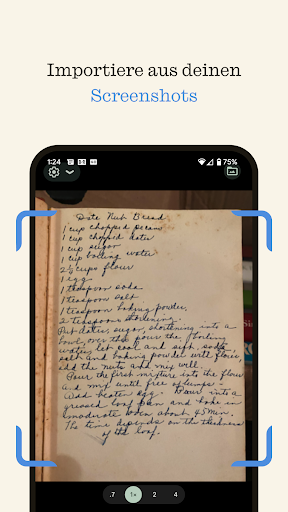 Importiere aus deinen
Screenshots
1:24
75%
Date Nut Bread
1 cup chopped pecans
1 cup chopped dates
1 cup sugar
1 cup boiling water
2½ cups flour
1 egg
1 teaspoon soda
1 teaspoon salt
1 teaspoon baking powder,
2 teaspoons shortening.
Put dates, sugar, shortening into a
bowl, over this pour the boiling
water, let cool and sift soda,
salt and baking powder with flour,
add the nuts and mix well.
Pour the first mixture into the flour
and mix until free of lumps-
Add beaten egg. Pour into a
greased loaf pan and bake in
moderate oven about 45 min.
The time depends on the thickness
of the loaf.
.7 1× 2 4